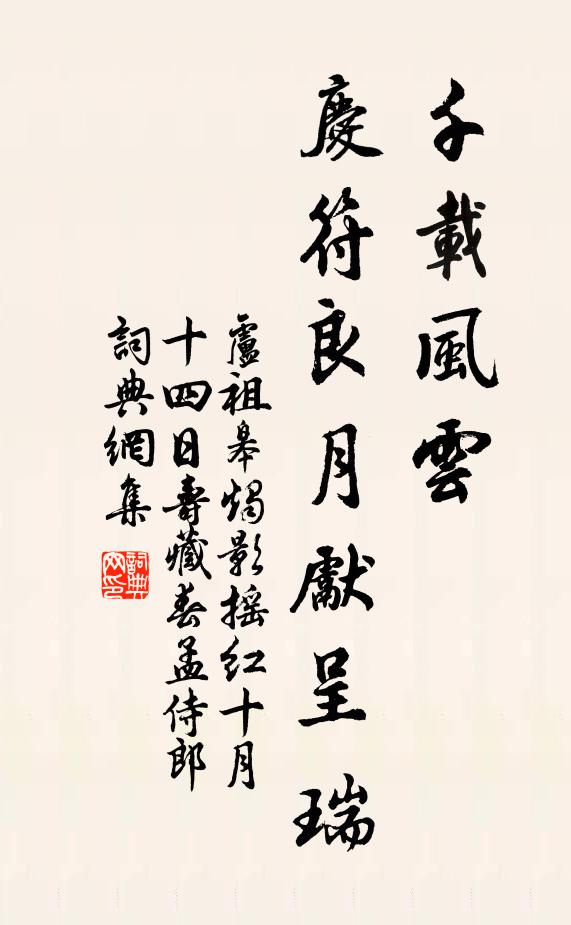 千載風雲
慶符良月獻呈瑞
盧祖皋燭影摇红十月
十四日壽藏春孟侍郎
詞典網集
詞典
网印